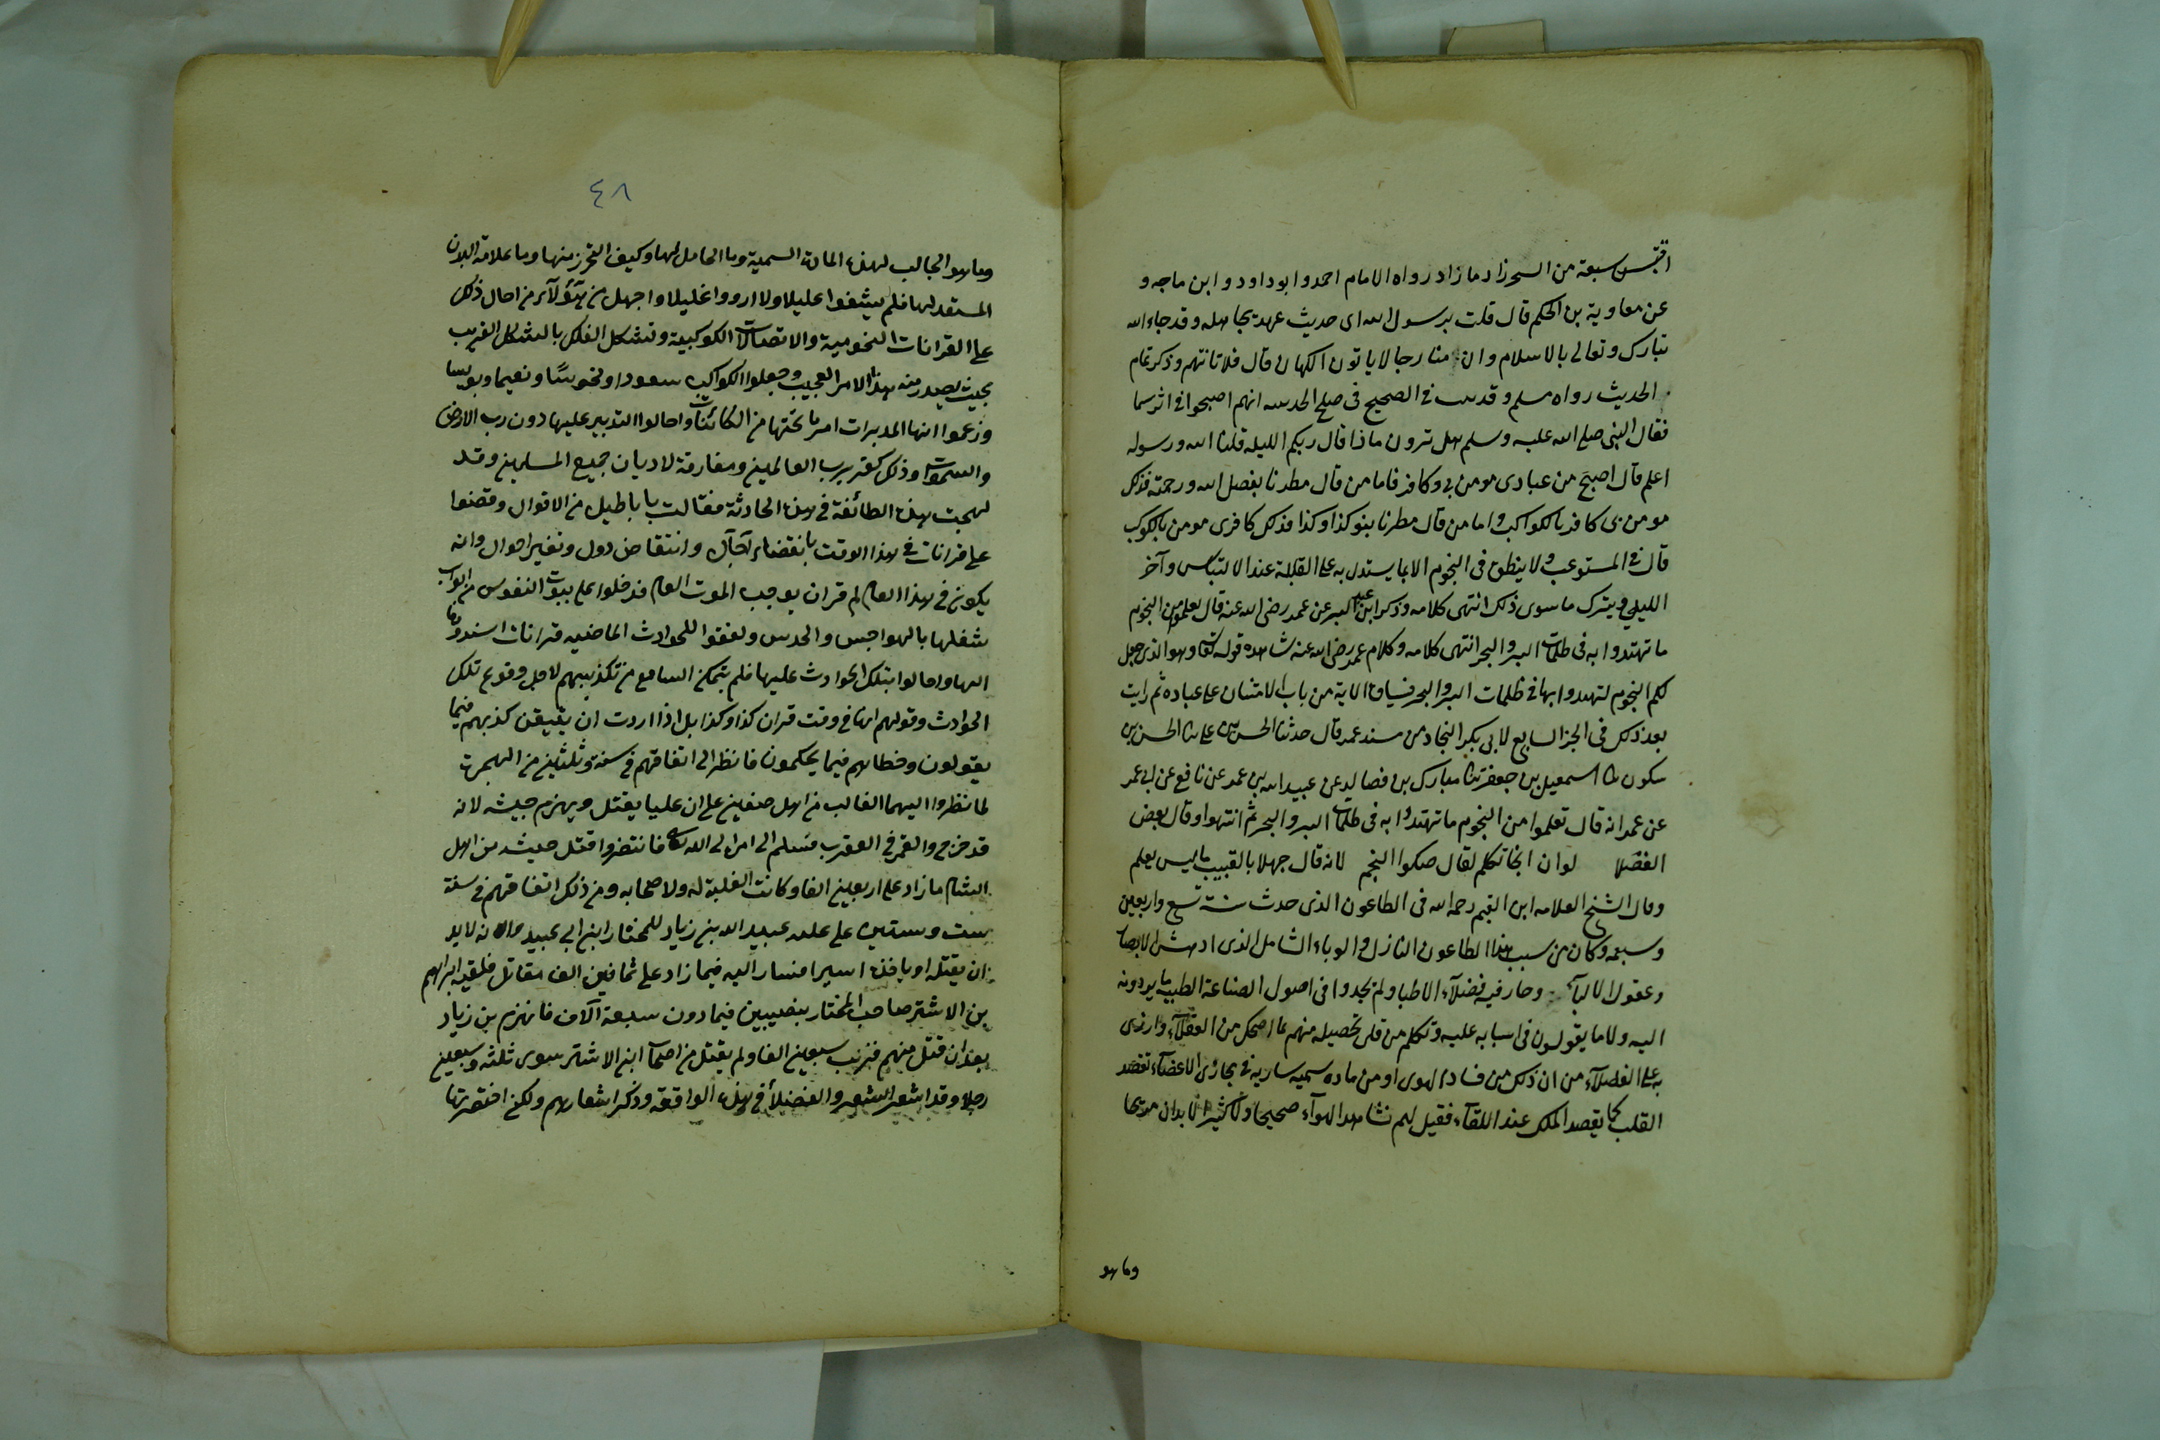 اقتبس سبعة من السحر زاد ما زاد رواه الامام احمد وابو داود وابن ماجه و
عن معاوية بن الحكم قال قلت برسول الله اى حديث عهد بجاهله وقد جاء الله
تبارك وتعالى بالاسلام وان منا رجالا ياتون الكهان قال فلا تاتهم وذكر تمام
الحديث رواه مسلم وقد فى الصحيح فى صلح انهم اصبحوا فى اثر سما
فقال النبى صلى الله عليه وسلم هل ترون ماذا قال ربكم الليله قلنا الله ورسوله
اعلم قال اصبح من عبادى مومن بى وكافر فاما من قال مطرنا بفضل الله ورحمته فذلك
مومن بى كافر بالكواكب واما من قال مطرنا بنو كذا وكذا فذلك كافرى مومن بالكوكب
قال فى المستوعب ولا ينظر فى النجوم الا بما يستدل به على القبلة عند الالتباس وآخر
الليل ويترك ما سوى ذلك انتهى كلامه وذكر ابن عبد البر عن عمر رضى الله عنه قال تعلموا من النجوم
ما تهتدوا به فى ظلمات البر والبحر انتهى كلامه وكلام عمر رضى الله عنه شاهده قوله تعا وهو الذى جعل
لكم النجوم لتهتدوا بها فى ظلمات البر والبحر فسياق الاية من باب الامتنان على عباده ثم رايت
بعد ذلك فى الجز السابع لابى بكر النجاد من مسند عمر قال حدثنا الحسن بن على ثنا الحسن بن
سكون ثنا اسمعيل بن جعفر ثنا مبارك بن فضاله عن عبيد الله بن عمر عن نافع عن ابن عمر
عن عمر انه قال تعلموا من النجوم ما تهتدوا به فى ظلمات البر والبحر ثم انتهوا وقال بعض
الفضلا لوان نجما تكلم لقال صكوا المنجم لانه قال جهلا بالغيب ما ليس يعلم
وقال الشيخ العلامه ابن القيم رحمه الله فى الطاعون الذى حدث سنة تسع واربعين
وسبعمه وكان من سبب هذا الطاعون النازل والوباء الشامل الذى ادهش الابصار
وعقول الالبآ وحار فيه فضلآء الاطبا ولم يجدوا فى اصول الصناعة الطبيه ما يردونه
اليه ولا ما يقولون فى اسبابه عليه وتكلم من قل تحصيله منهم بما اضحك من العقلآء وازرى
به على الفضلآء من ان ذلك من فساد الهوى او من ماده سميه ساريه فى مجارى الاعضآء تقصد
القلب كما يقصد الملك عند اللقآء فقيل لهم نشاهد الهوآء صحيحا وكثير الابدان
وما هو
٤٨
وما هو الجالب لهذه المادة السمية وما الحامل لها وكيف التحرز منها وما علامة البدن
المستعد لها فلم يشفوا عليلا ولا ارووا غليلا واجهل من هؤلآء من احال ذلك
على القرانات النجومية والاتصالات الكوكبية وتشكل الفلك بالشكل الغريب
بحيث يصدر منه هذا الامر العجيب وجعلوا الكواكب سعودا ونحوسًا ونعيما وبوسا
وزعموا انها المدبرات امر ما تحتها من الكائنات واحالوا التدبير عليها دون رب الارض
والسموات وذلك كفر برب العالمين ومفارقة لاديان جميع المسلمين وقد
لهجت هذه الطائفة فى هذه الحادثة مقالت باباطيل من الاقوال وقضوا
على قرانات فى هذا الوقت بانقضاء آجال وانتقاض دول وتغير احوال وانه
يكون فى هذا العام لم قران يوجب الموت العام فدخلوا على بيوت النفوس من ابواب
شغلها بالهواجس والحدس ولفقوا للحوادث الماضيه قرانات اسندوها
اليها واحالوا بتلك الحوادث عليها فلم يتمكن السامع من تكذيبهم لاجل وقوع تلك
الحوادث وقولهم انها فى وقت قران كذا وكذا بل اذا اردت ان يتيقن كذبهم فيما
يقولون وخطاهم فيما يحكمون فانظر الى اتفاقهم فى سنة وثلثين من الهجرت
لما نظروا اليهما الغالب من اهل صفين على ان عليا يقتل ويهزم جيشه لانه
قد خرج والقمر فى العقرب فسلم الى امراء الى الله تعا فانتصروا قتل جيشه من اهل
الشام ما زاد على اربعين الفا وكانت الغلبة له ولاصحابه ومن ذلك اتفاقهم فى سنة
ست وستين على غلبه عبيد الله بن زياد للمختار ابن ابى عبيد وانه لا بد
ان يقتله او ياخذه اسيرا فسار اليه فيما زاد على ثمانين الف مقاتل فلقيه ابراهيم
بن الاشتر صاحب المختار بنصيبين فيما دون سبعة آلاف فانهزم بن زياد
بعد ان قتل منهم قريب سبعين الفا ولم يقتل من اصحاب ابن الاشتر سوى ثلثه وسبعين
رجلا وقد اشعر الشعر والفضلآ فى هذه الواقعه وذكر اشعارهم ولكن اختصرتها